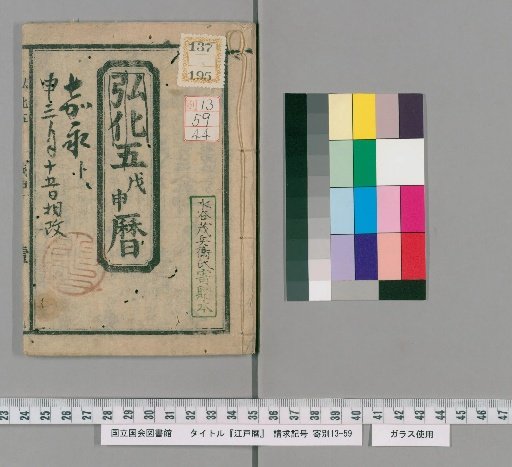 137
195
別13
59
44
弘化五戊申暦
嘉永ト
申三月十五日相改
水谷茂兵衛氏寄贈本
23 24 25 26 27 28 29 30 31 32 33 34 35 36 37 38 39 40 41 42 43 44 45 46 47
国立国会図書館 タイトル『江戸暦』 請求記号 寄別13-59
ガラス使用